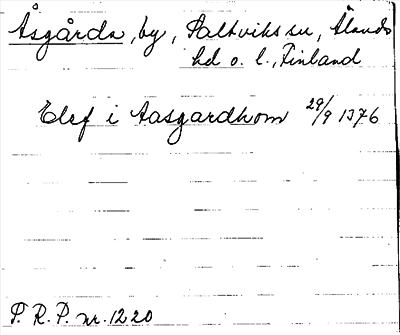 Åsgårda, by, Saltviks sn, Ålands
hd o. l., Finland
Elef i Aasgardhom 29/9 1376
F. R. P. nr. 1220